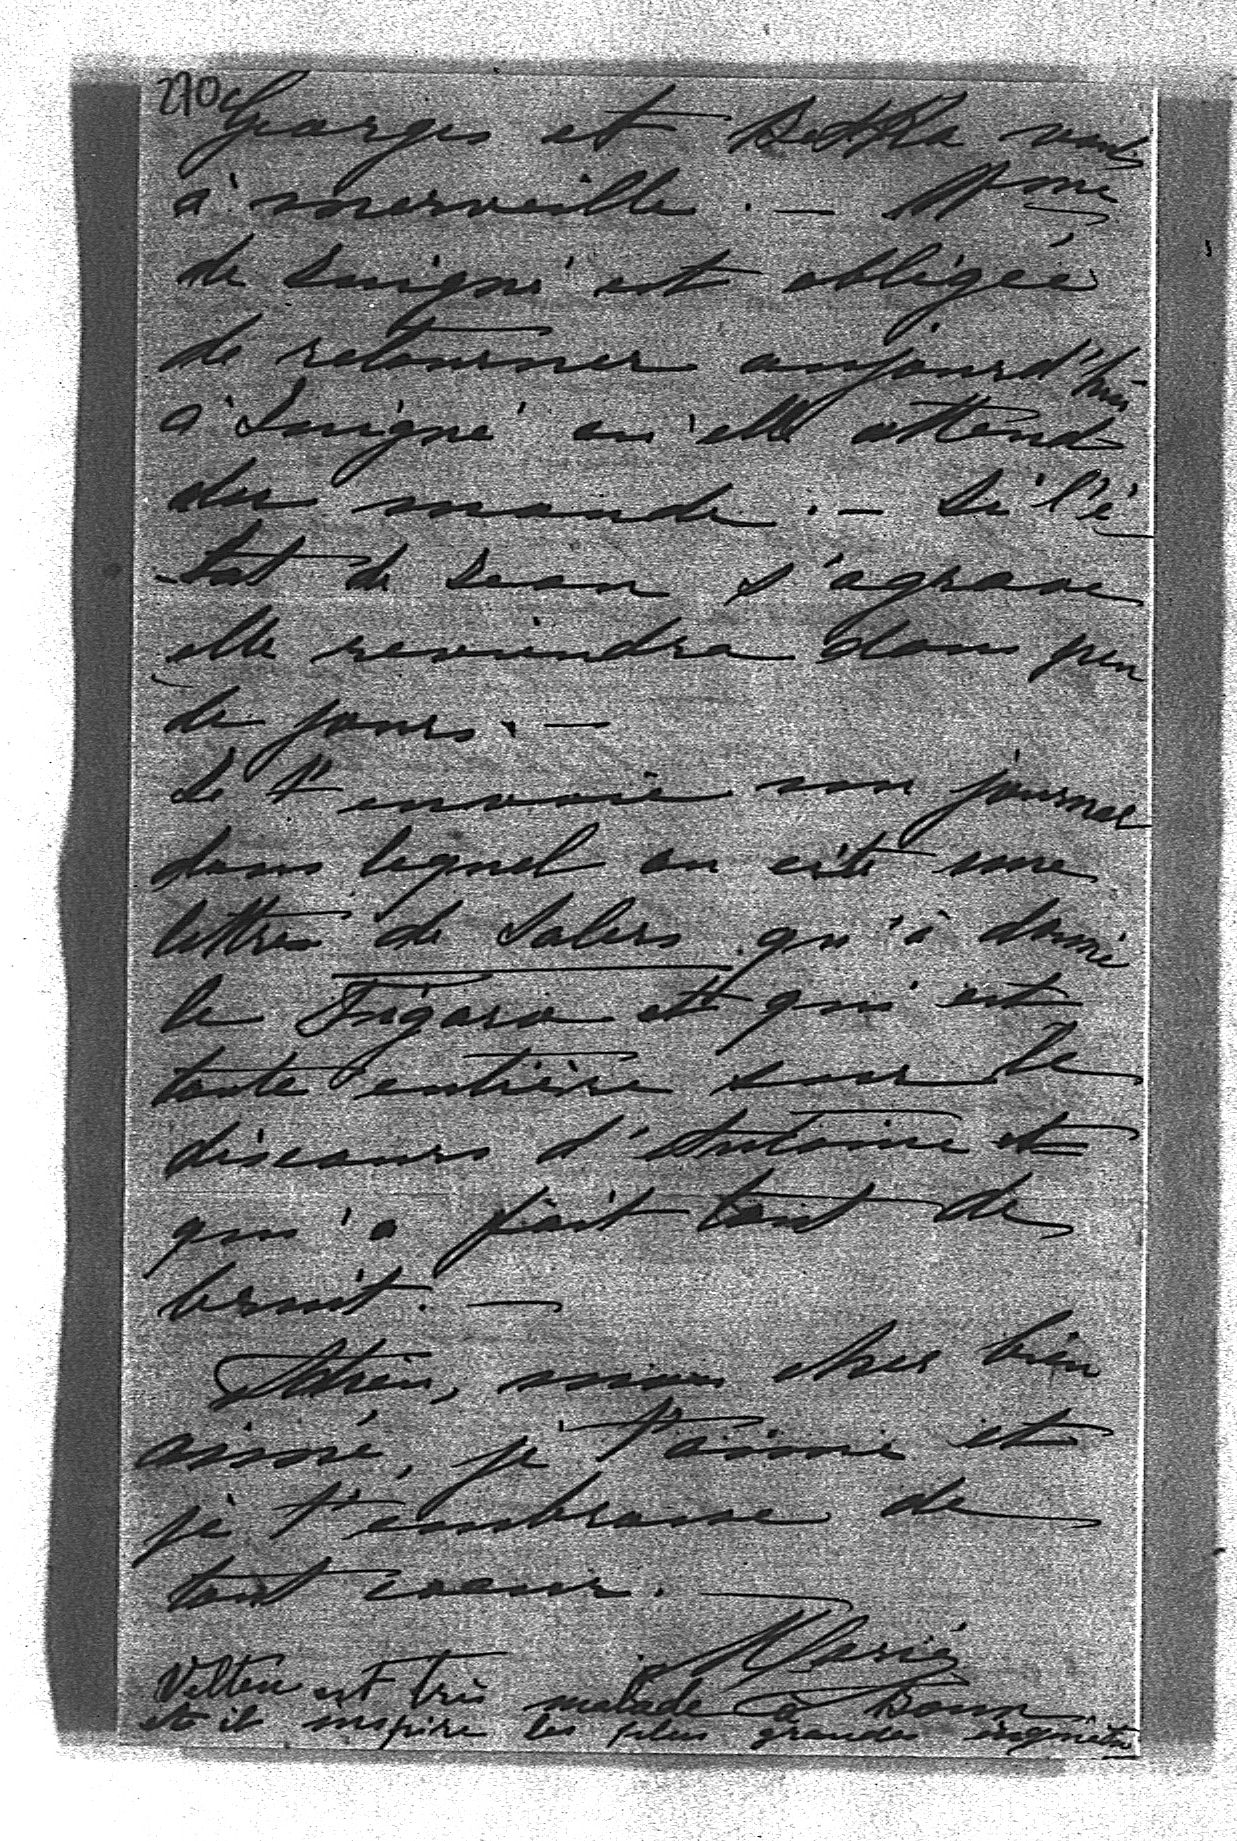 270
Georges et Bertha vont
à merveille. — Mme
de Juigné est obligée
de retourner aujourd'hui
à Juigné où elle attend
du monde. — Si l'é
tat de Jean s'agrave
elle reviendra dans peu
de jours. —
Je t'envoie un journal
dans lequel on cite une
lettre de Salers qu'à donné
le Figaro et qui est
toute entière sur le
discours d'Antoine et
qui a fait tant de
bruit. —
Adieu, mon cher bien
aimé, je t'aime et
je t'embrasse de
tout cœur. —
Marie
Velten est très malade à Bonn
et il inspire les plus grandes inquiétu